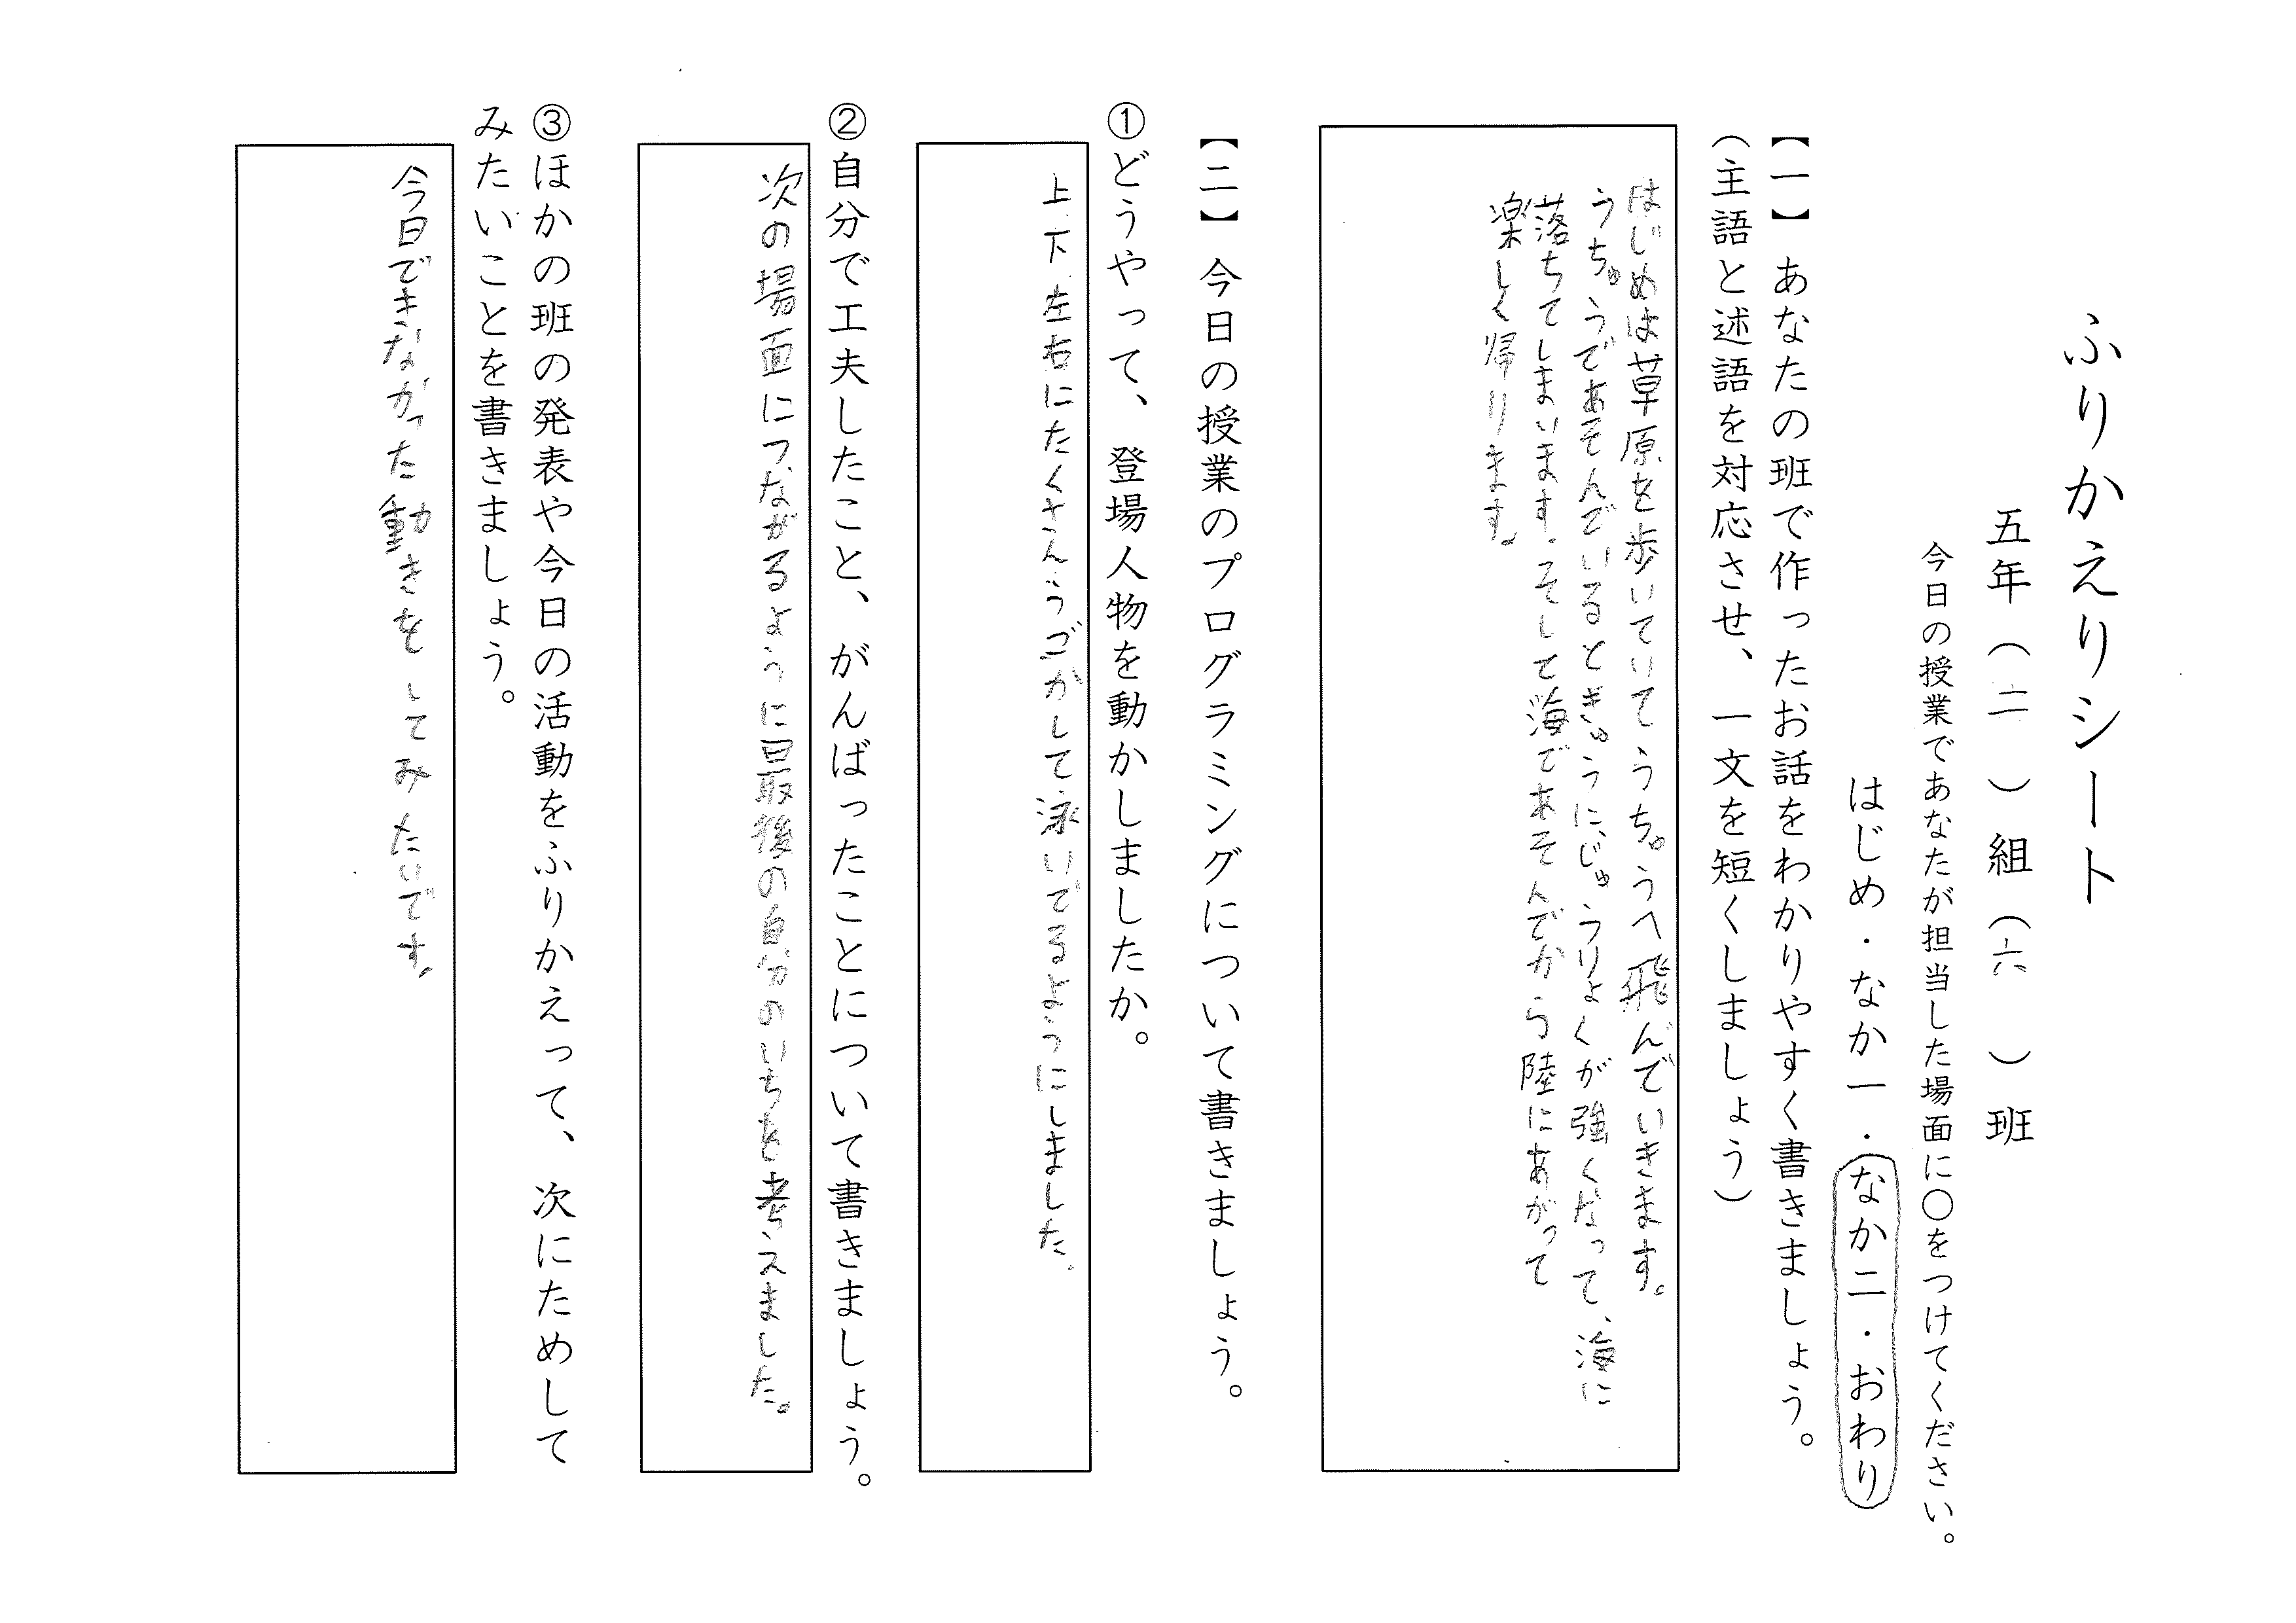 ふりかえりシート
五年（二）組（六）班
今日の授業であなたが担当した場面に○をつけてください。
はじめ・なか一・なか二・おわり
【一】あなたの班で作ったお話をわかりやすく書きましょう。
（主語と述語を対応させ、一文を短くしましょう）
はじめは草原を歩いていてうちゅうへ飛んでいきます。
うちゅうであそんでいるときゅうに、じゅうりょくが強くなって、海に
落ちてしまいます。そして海であそんでから陸にあがって
楽しく帰ります。
【二】今日の授業のプログラミングについて書きましょう。
①どうやって、登場人物を動かしましたか。
上下左右にたくさんうごかして泳いでるようにしました。
②自分で工夫したこと、がんばったことについて書きましょう。
次の場面につながるように最後の自分のいちを考えました。
③ほかの班の発表や今日の活動をふりかえって、次にためして
みたいことを書きましょう。
今日できなかった動きをしてみたいです。